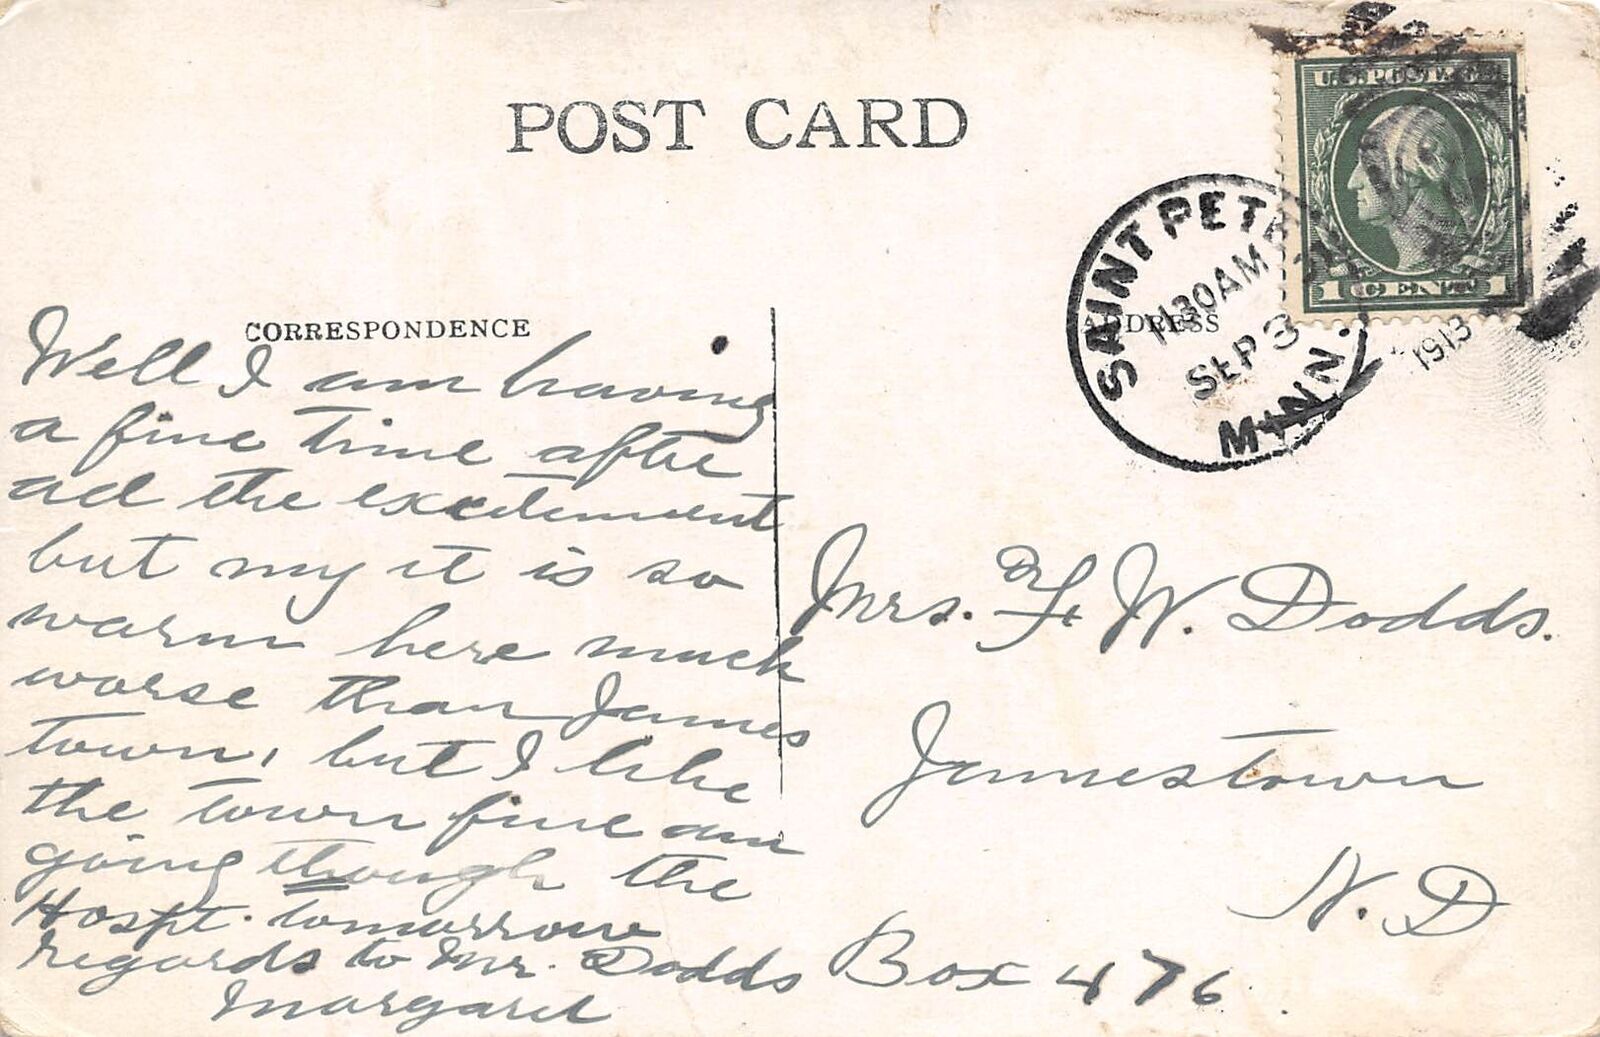 POST CARD
U.S. POSTAGE
1 CENT 1
SAINT PETER
MINN.
11 30 AM
SEP 3
1913
CORRESPONDENCE
ADDRESS
Well I am having
a fine time after
all the excitement
but my it is so
warm here much
worse than James
town, but I like
the town fine am
going though the
Hospt. tomorrow
regards to Mr. Dodds
Margaret
Mrs. F. W. Dodds.
Jamestown
N. D
Box 476